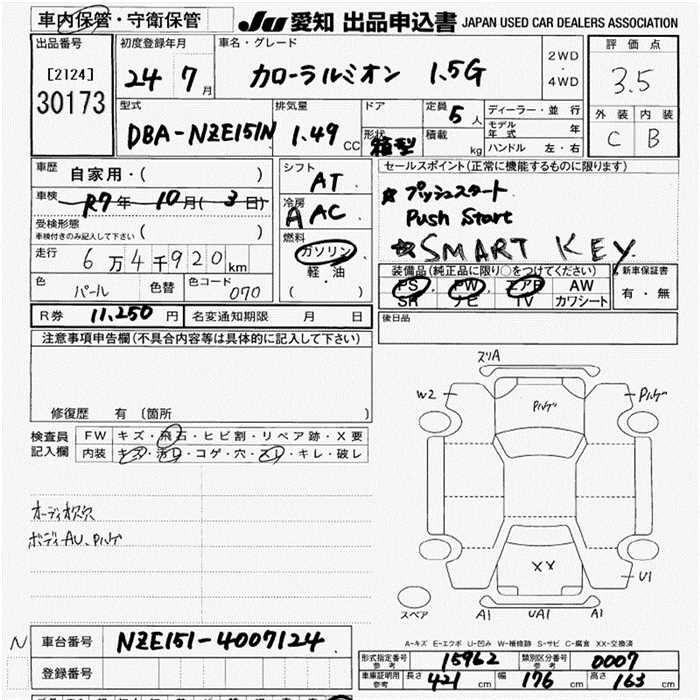 車内保管・守衛保管
JU 愛知 出品申込書 JAPAN USED CAR DEALERS ASSOCIATION
出品番号 初度登録年月 車名・グレード 評価点
[2124]
30173
24 7月
カローラルミオン 1.5G
2WD・4WD
3.5
外装 内装
C B
型式 排気量 ドア 定員 ディーラー・並行
DBA-NZE151N 1.49 CC
5人
モデル年式 年
形状 箱型 積載 kg
ハンドル 左・右
車歴 自家用・( )
車検 R7年 10月(3日)
受検形態
車検付きのみ記入して下さい ( )
走行 6万4千920km
色 パール 色替 色コード 070
シフト AT
冷房 AAC
燃料 ガソリン・軽油 ( )
セールスポイント(正常に機能するものに限ります)
☆プッシュスタート
Push Start
☆SMART KEY.
装備品(純正品に限り○をつけてください) 新車保証書
PS PW エアB AW 有・無
SR ナビ TV カワシート
R券 11,250円 名変通知期限 月 日
後日品
注意事項申告欄(不具合内容等は具体的に記入して下さい)
修復歴 有 〔箇所 〕
検査員記入欄 FW キズ・飛石・ヒビ割・リペア跡・X要
内装 キズ・汚レ・コゲ・穴・スレ・キレ・破レ
オーディオ欠穴
ボディーAU、Pハゲ
スリA
W2 Pハゲ Pハゲ
XX
U1
スペア A1 UA1 A1
A-キズ E-エクボ U-凹み W-補修跡 S-サビ C-腐食 XX-交換済
N 車台番号 NZE151-4007124
登録番号
形式指定番号参考 15962 類別区分番号参考 0007
車庫証明用参考 長さ 421cm 幅 176cm 高さ 163cm